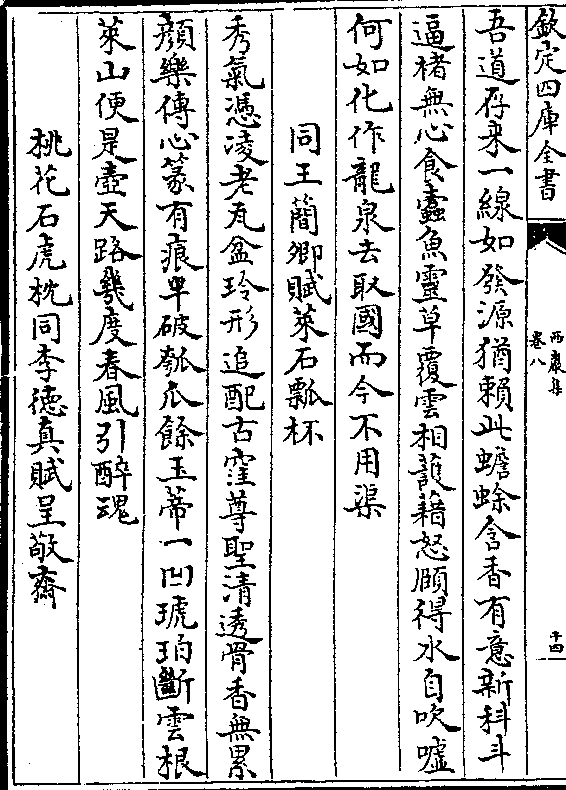 欽定四庫全書
西巖集
卷八
十四
吾道存来一線如發源猶賴此蟾蜍含香有意新科斗
逼楮無心食蠹魚靈草覆雲相護藉怒頤得水自吹噓
何如化作龍泉去取國而今不用渠
同王簡卿賦萊石瓢杯
秀氣憑凌老瓦盆玲形追配古窪尊聖清透骨香無累
顔樂傳心篆有痕半破瓠瓜餘玉蒂一凹琥珀斷雲根
萊山便是壺天路幾度春風引醉魂
桃花石虎枕同李德真賦呈敬齋